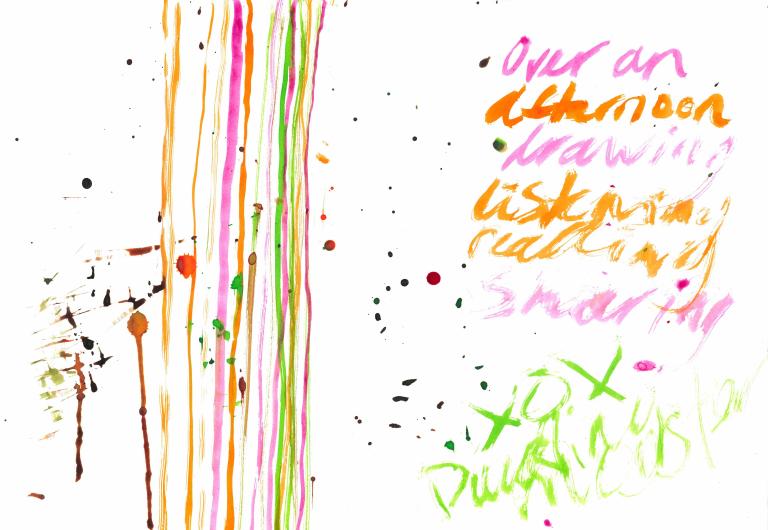 Over an
afternoon
drawing
listening
reading
sharing
xo x